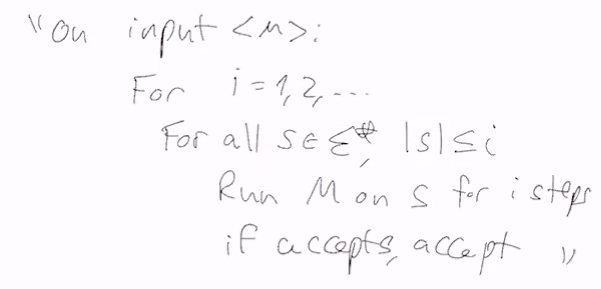 "On input <M>:
For i = 1, 2, ...
For all s ∈ Σ*, |s| ≤ i
Run M on s for i steps
if accepts, accept "